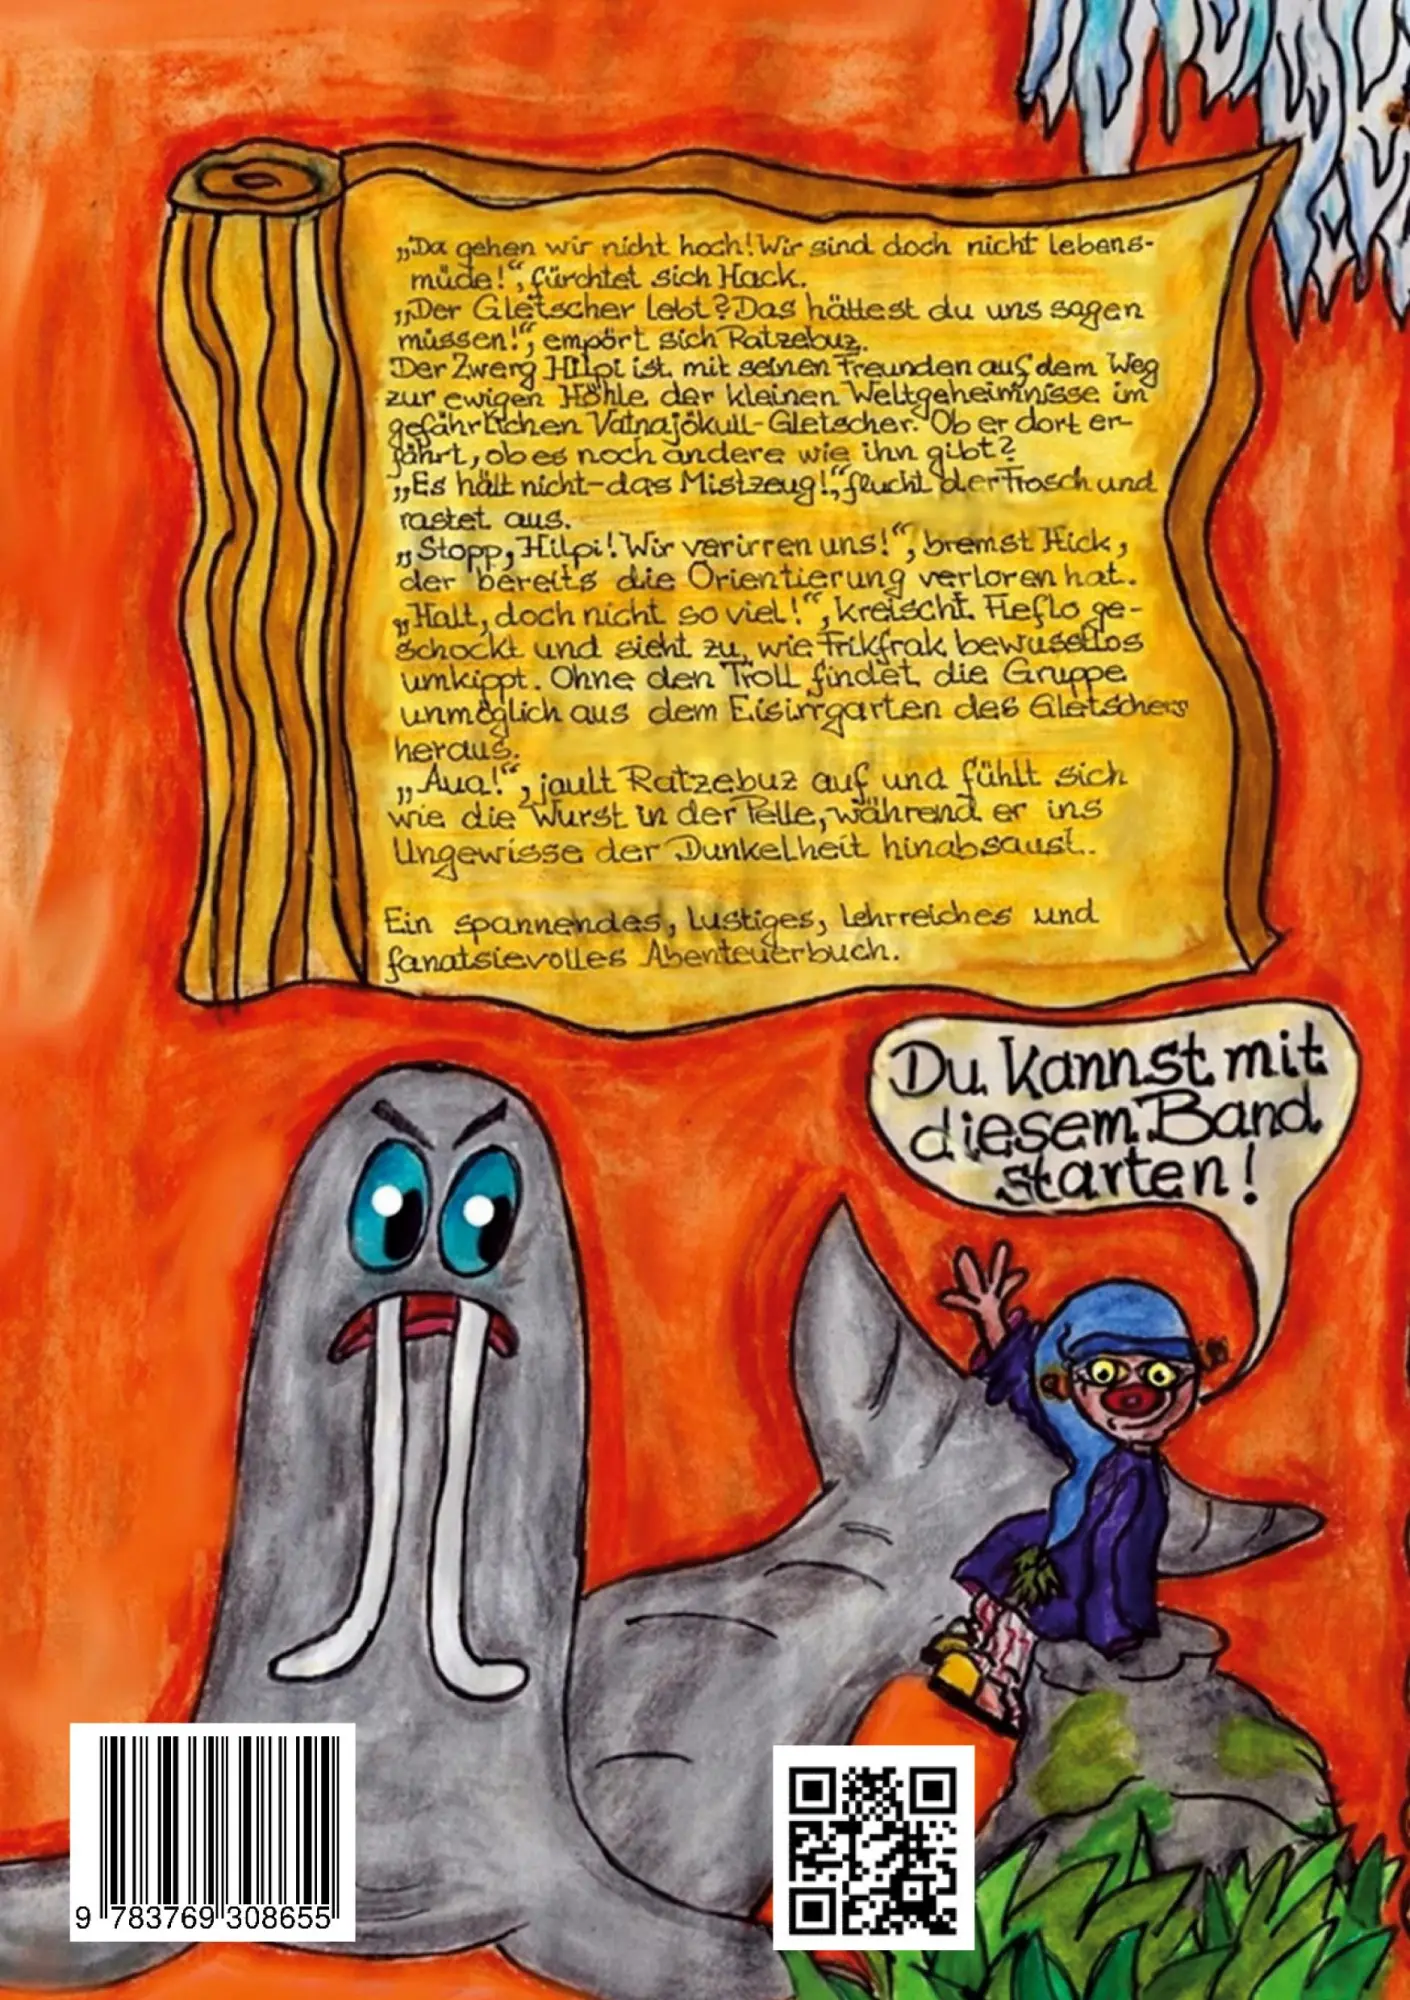 „Da gehen wir nicht hoch! Wir sind doch nicht lebens-
müde!“, fürchtet sich Hack.
„Der Gletscher lebt? Das hättest du uns sagen
müssen!“, empört sich Ratzebuz.
Der Zwerg Hilpi ist mit seinen Freunden auf dem Weg
zur ewigen Höhle der kleinen Weltgeheimnisse im
gefährlichen Vatnajökull-Gletscher. Ob er dort er-
fährt, ob es noch andere wie ihn gibt?
„Es hält nicht-das Mistzeug!“, flucht der Frosch und
rastet aus.
„Stopp, Hilpi! Wir verirren uns!“, bremst Hick,
der bereits die Orientierung verloren hat.
„Halt, doch nicht so viel!“, kreischt Fleflo ge-
schockt und sieht zu, wie Frikfrak bewusstlos
umkippt. Ohne den Troll findet die Gruppe
unmöglich aus dem Eisirrgarten des Gletschers
heraus.
„Aua!“, jault Ratzebuz auf und fühlt sich
wie die Wurst in der Pelle, während er ins
Ungewisse der Dunkelheit hinabsaust.
Ein spannendes, lustiges, lehrreiches und
fanatsievolles Abenteuerbuch.
Du kannst mit
diesem Band
starten!
9 783769 308655